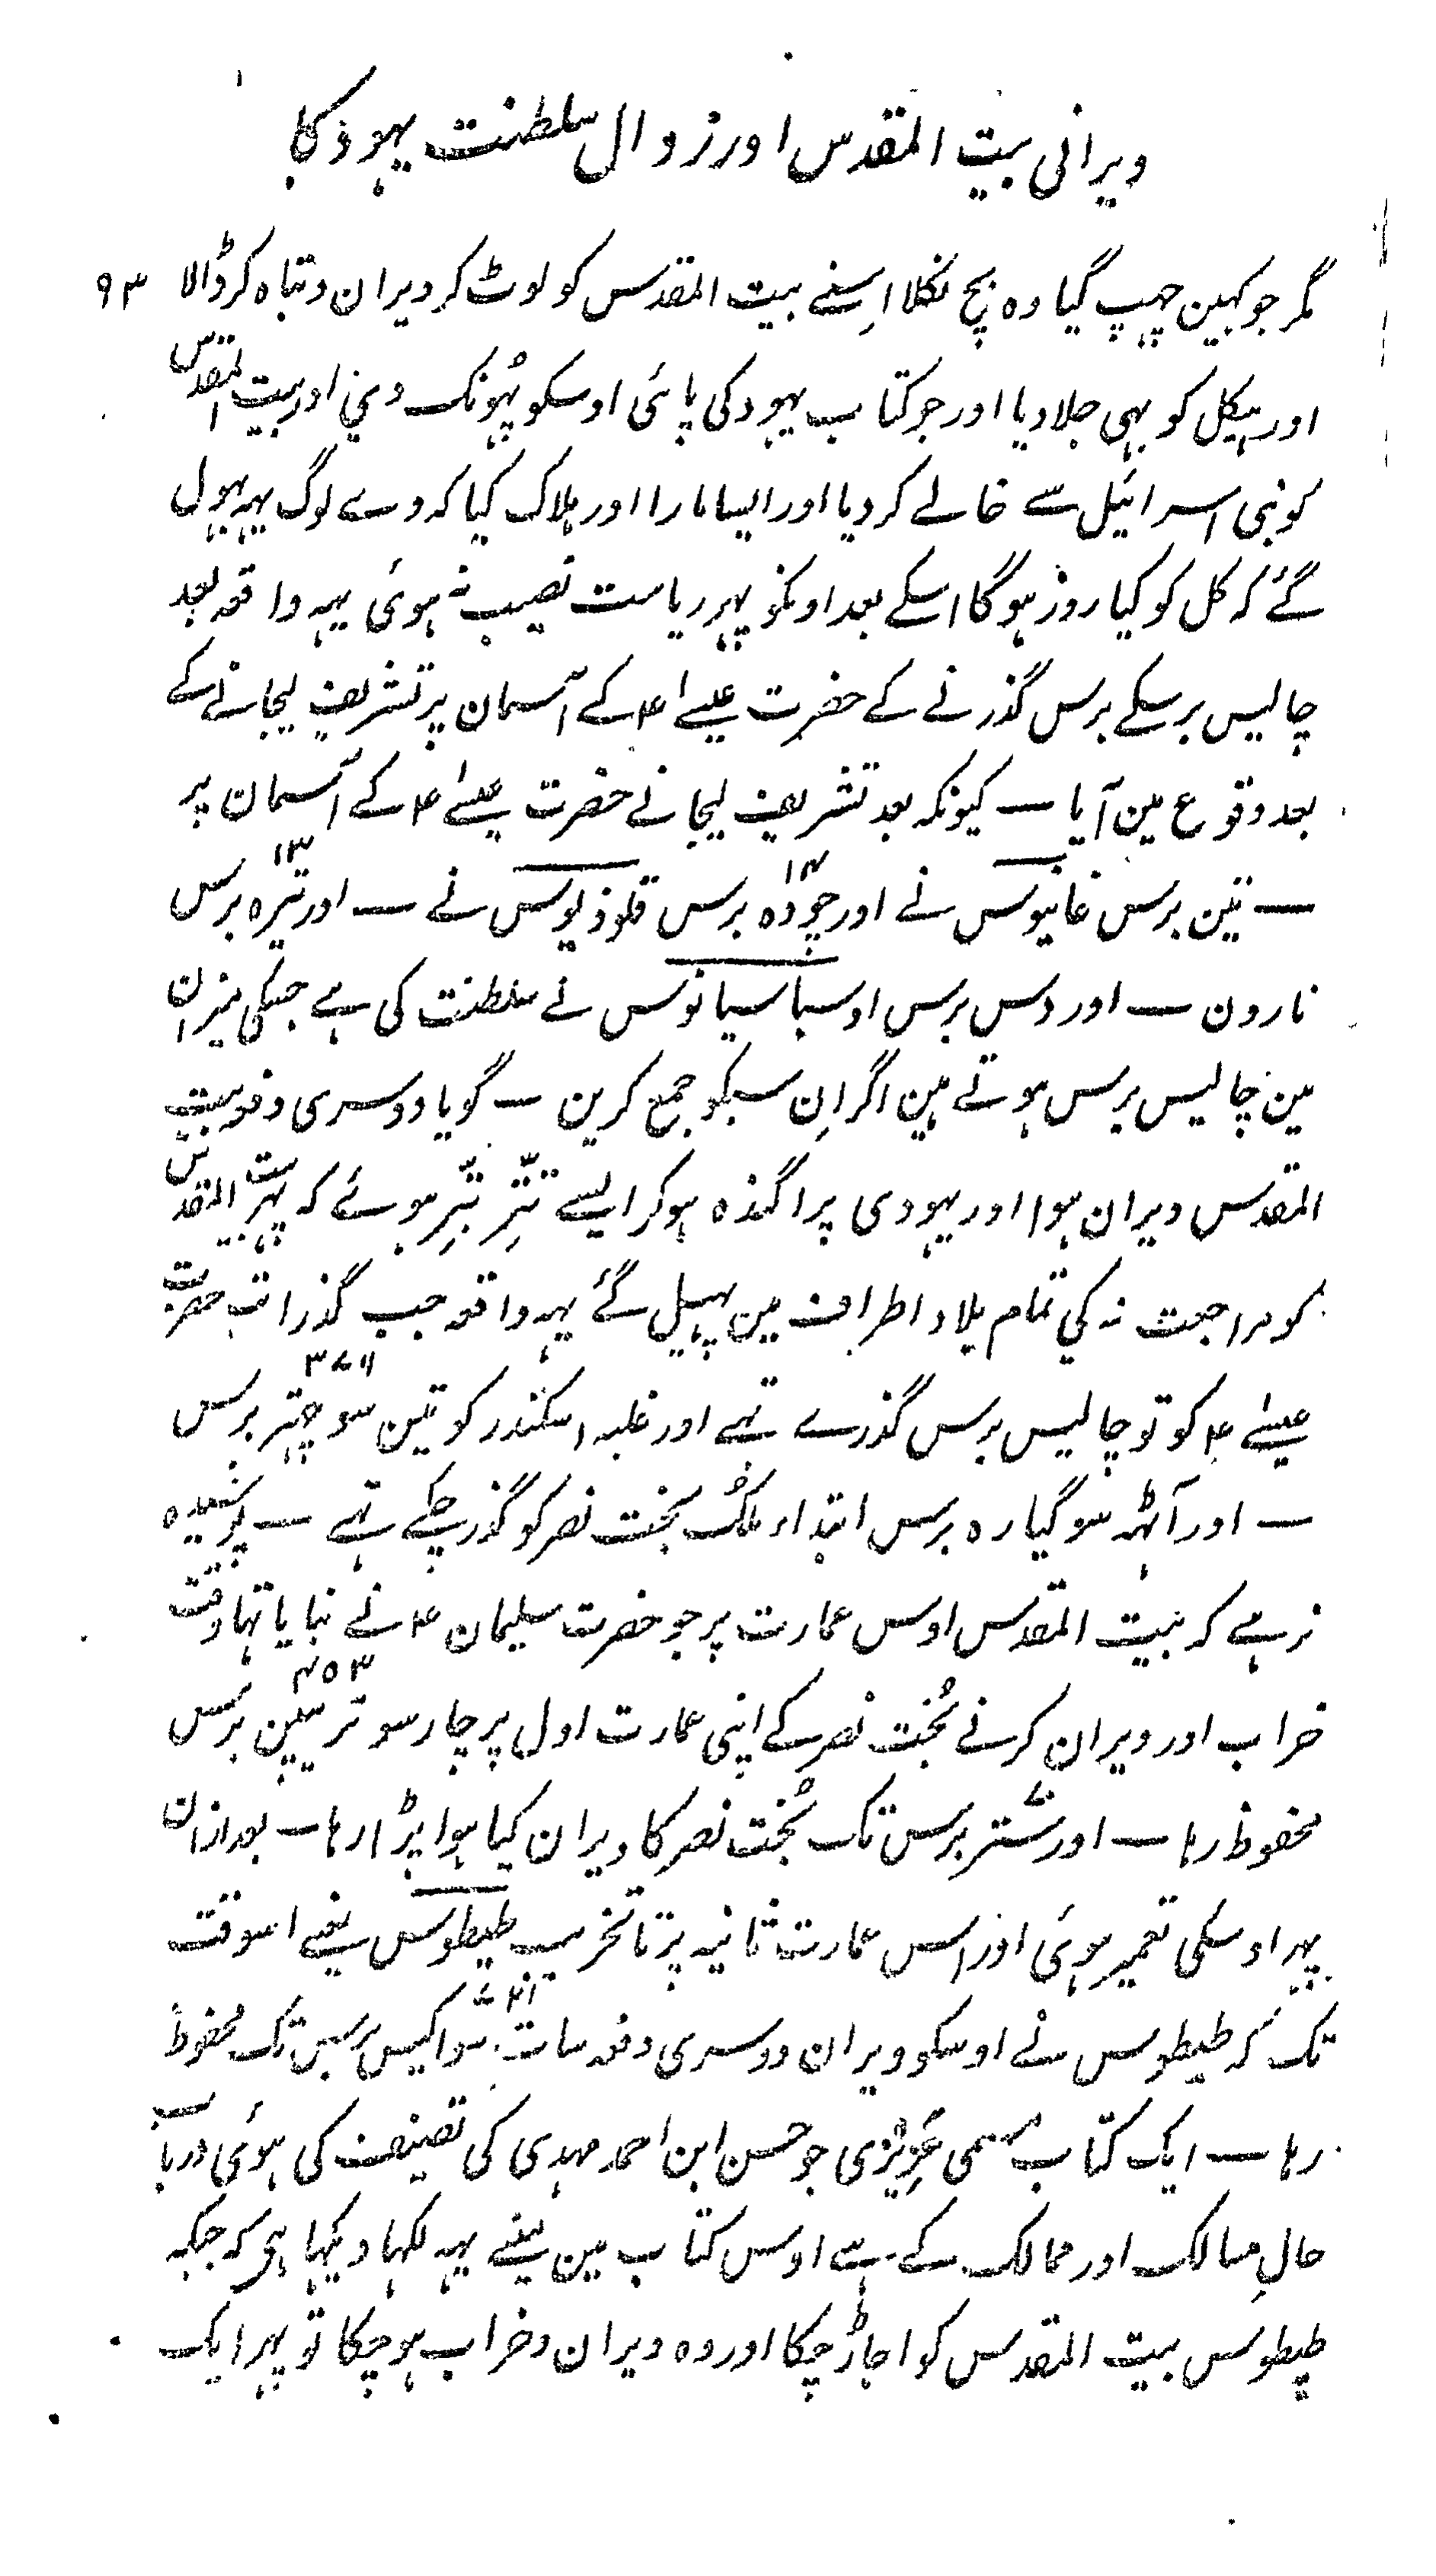 ویرانی بیت المقدس اور زوال سلطنت یہود کا
۹۳
مگر جو کہین چہپ گیا وہ بچ نکلا اِسنے بیت المقدس کو لوٹ کر ویران و تباہ کر ڈالا
اور ہیکل کو بہی جلا دیا اور جو کتاب یہود کی پائی اوسکو پہُونک دي اور بیت المقدس
کو بنی اسرائیل سے خالے کر دیا اور ایسا مارا اور ہلاک کیا کہ وے لوگ یہہ بہول
گئے کہ کل کو کیا روز ہوگا اسکے بعد اونکو پہر ریاست نصیب نہ ہوئی یہہ واقعہ بعد
چالیس برسکے برس گذرنے کے حضرت عیسےٰ ع کے آسمان پر تشریف لیجانے کے
بعد وقوع مین آیا ــ کیونکہ بعد تشریف لیجانے حضرت عیسےٰ ع کے آسمان پر
ــ تین برس غانیوس نے اور چودہ ۱۴ برس قلوذیوس نے ــ اور تیرہ ۱۳ برس
نارون ــ اور دس برس اوسباسیانوس نے سلطنت کی ہے جسکی میزان
مین چالیس برس ہوتے ہین اگر اِن سبکو جمع کرین ــ گویا دوسری دفعہ بیت
المقدس ویران ہوا اور یہودی پراگندہ ہو کر ایسے تِتّر بِتّر ہوئے کہ پہر بیت المقدس
کو مراجعت نہ کي تمام بلاد اطراف مین پہیل گئے یہہ واقعہ جب گذرا تب حضرت
عیسےٰ ع کو تو چالیس برس گذرے تہے اور غلبہ اسکندر کو تین سو چہتر ۳۷۶ برس
ــ اور آٹہہ سو گیارہ برس ابتداء ملک بُخت نصر کو گذر چکے تہے ــ پوشیدہ
نرہے کہ بیت المقدس اوس عمارت پر جو حضرت سلیمان ع نے بنایا تہا وقت
خراب اور ویران کرنے بُخت نصر کے اپنی عمارت اول پر چار سو ترپین ۴۵۳ برس
محفوظ رہا ــ اور ستّر برس تک بُخت نصر کا ویران کیا ہوا پڑا رہا ــ بعد ازان
پہر اوسکی تعمیر ہوئی اور اس عمارت ثانیہ پر تا تخریب طیطوس یعنے اسوقت
تک کہ طیطوس نے اوسکو ویران دوسری دفعہ سات سو اکیس ۷۲۱ برس تک محفوظ
رہا ــ ایک کتاب مسمی عزیزی جو حسن ابن احمد مہدی کی تصنیف کی ہوئی درباب
حالِ مسالک اور ممالک کے ہے اوس کتاب مین مینے یہہ لکہا دیکہا ہی کہ جبکہ
طیطوس بیت المقدس کو اجاڑ چکا اور وہ ویران و خراب ہو چکا تو پہر ایک